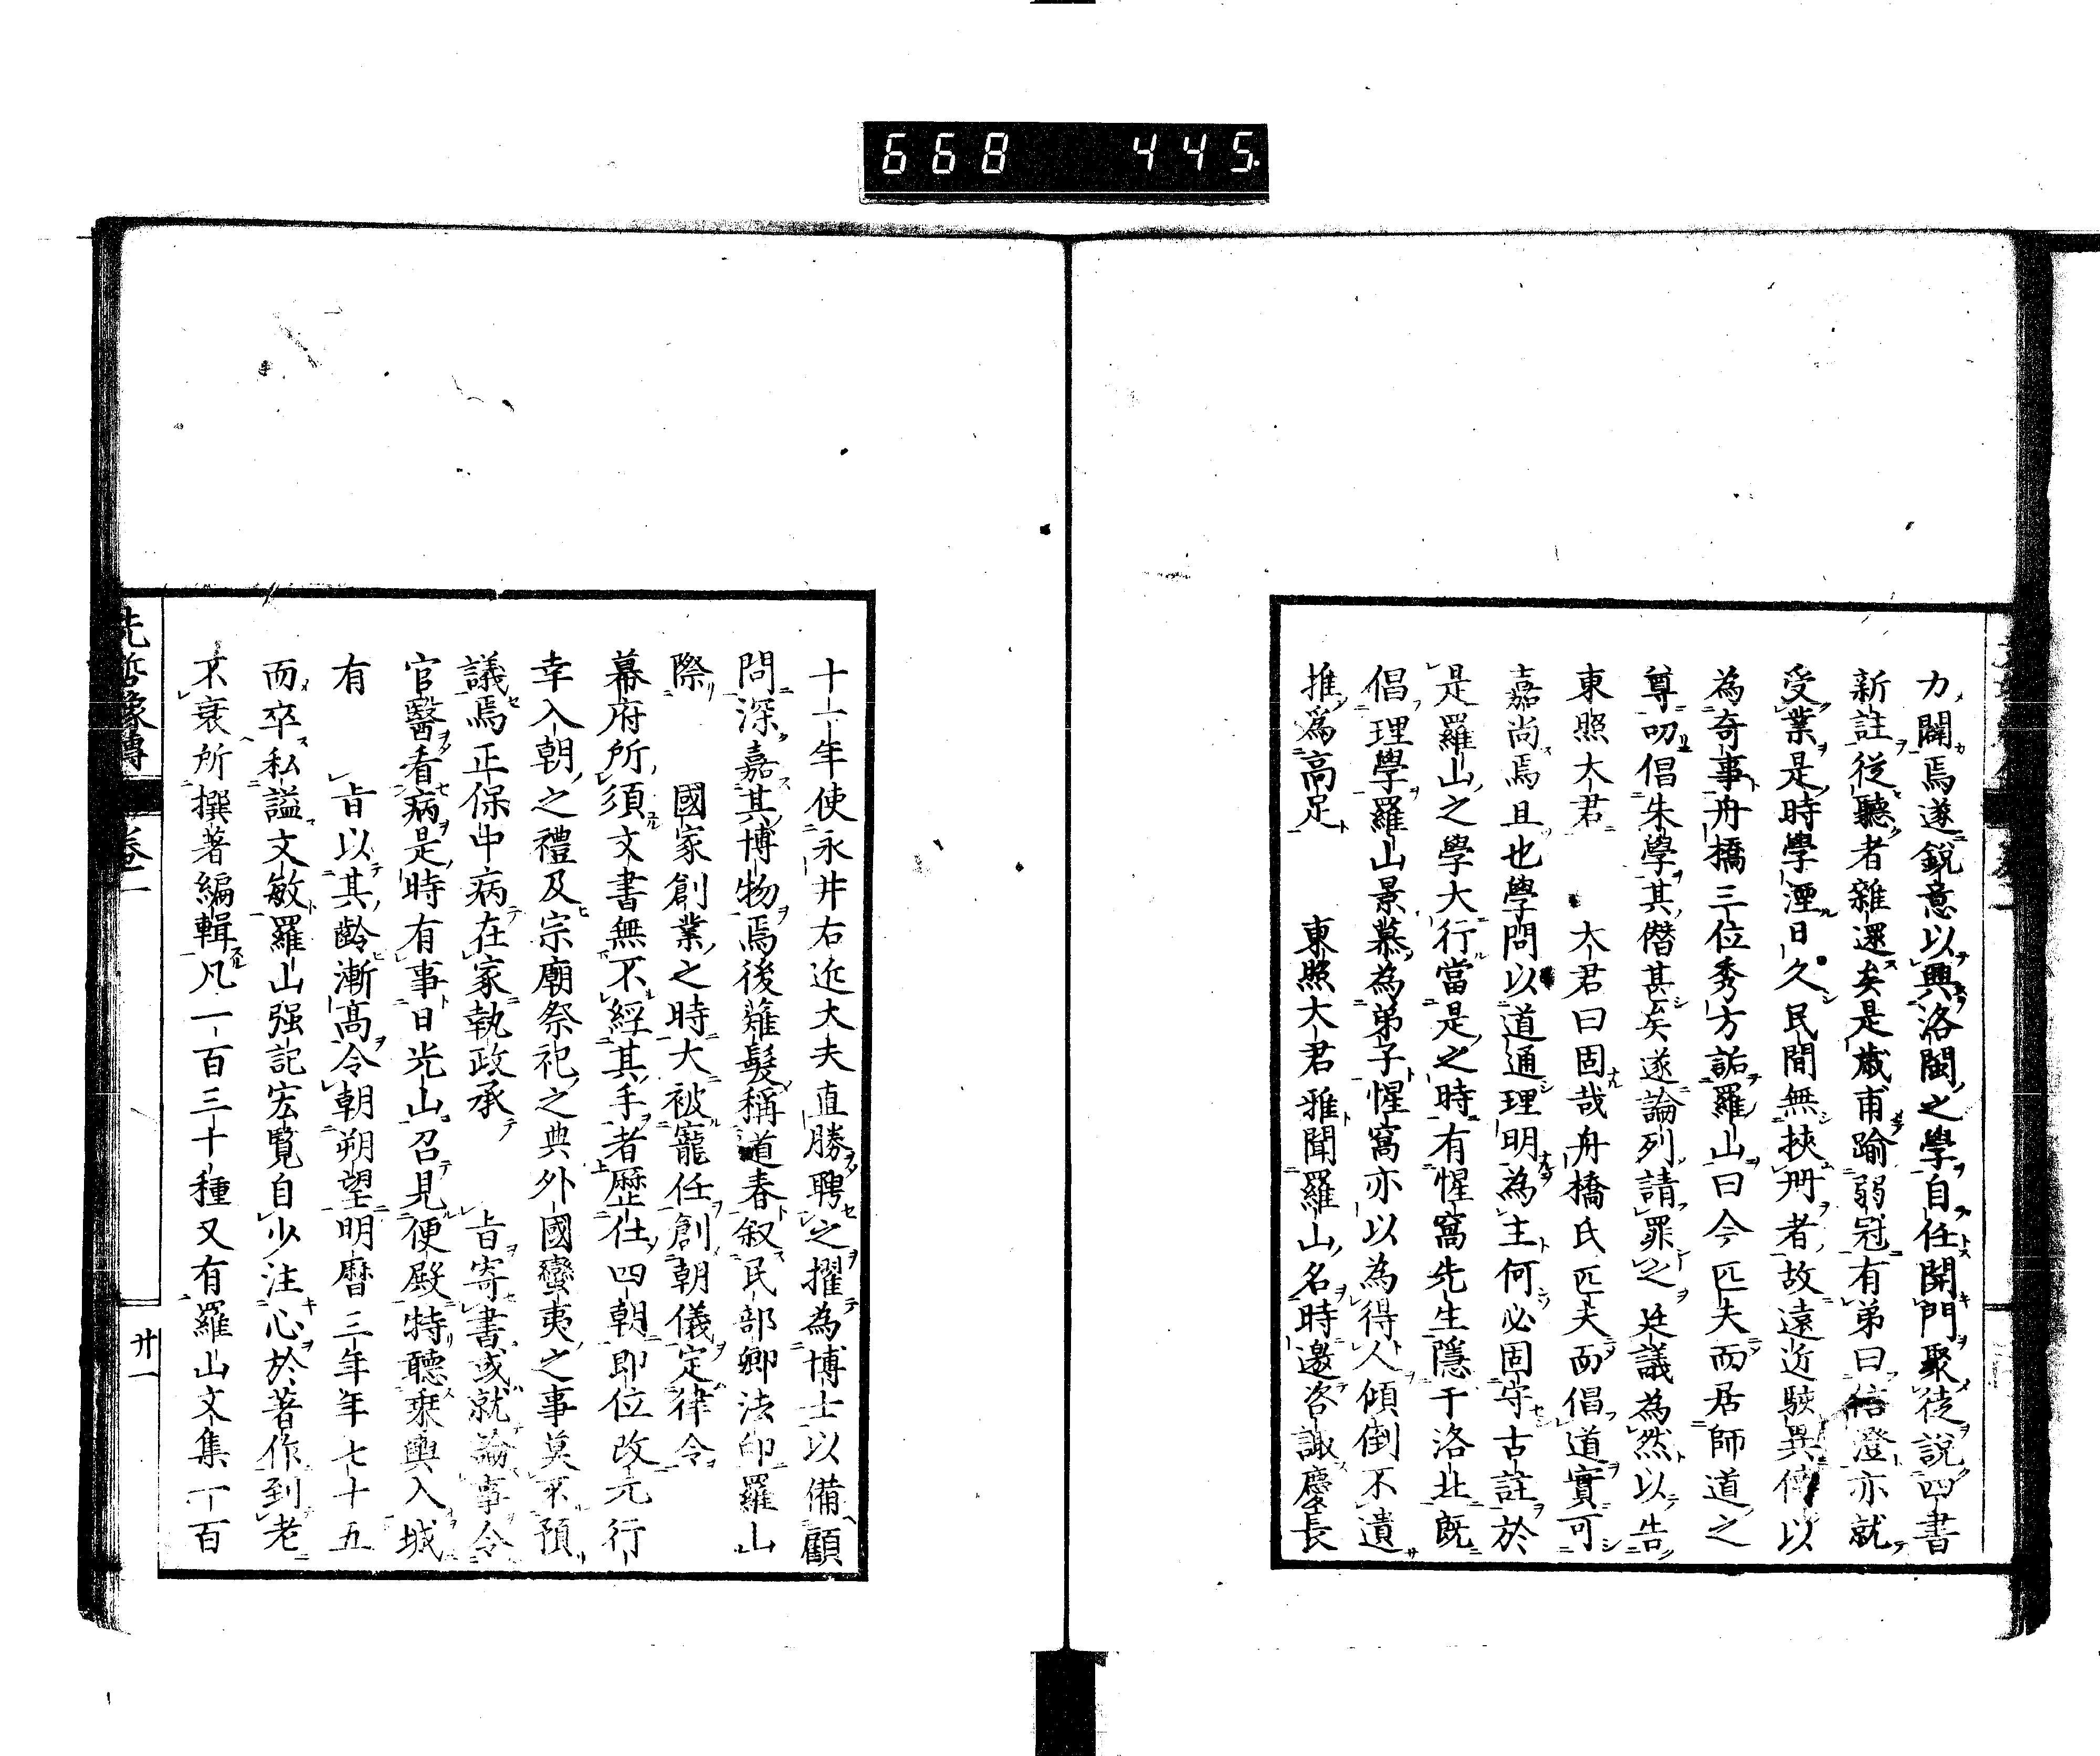 668 445
力闢焉遂銳意以興洛閩之學自任開門聚徒說四書
新註從聽者雜遝矣是歲甫踰弱冠有弟曰信澄亦就
受業是時學湮日久民間無挾冊者故遠近駭異以
為奇事舟橋三位秀方詬羅山曰今匹夫而居師道之
尊叨倡朱學其僭甚矣遂論列請罪之廷議為然以告
東照大君 大君曰固哉舟橋氏匹夫而倡道實可
嘉尚焉且也學問以道通理明為主何必固守古註於
是羅山之學大行當是之時有惺窩先生隱于洛北既
倡理學羅山景慕為弟子惺窩亦以為得人傾倒不遺
推為高足 東照大君雅聞羅山名時邀咨諏慶長
十一年使永井右近大夫直勝聘之擢為博士以備顧
問深嘉其博物焉後薙髮稱道春叙民部卿法印羅山
際 國家創業之時大被寵任創朝儀定律令
幕府所須文書無不經其手者歷仕四朝即位改元行
幸入朝之禮及宗廟祭祀之典外國蠻夷之事莫不預
議焉正保中病在家執政承 旨寄書或就論事令
官醫看病是時有事日光山召見便殿特聽乘輿入城
有 旨以其齡漸高令朝朔望明曆三年年七十五
而卒私謚文敏羅山强記宏覽自少注心於著作到老
不衰所撰著編輯凡一百三十種又有羅山文集一百
先哲像傳 卷一
廿一